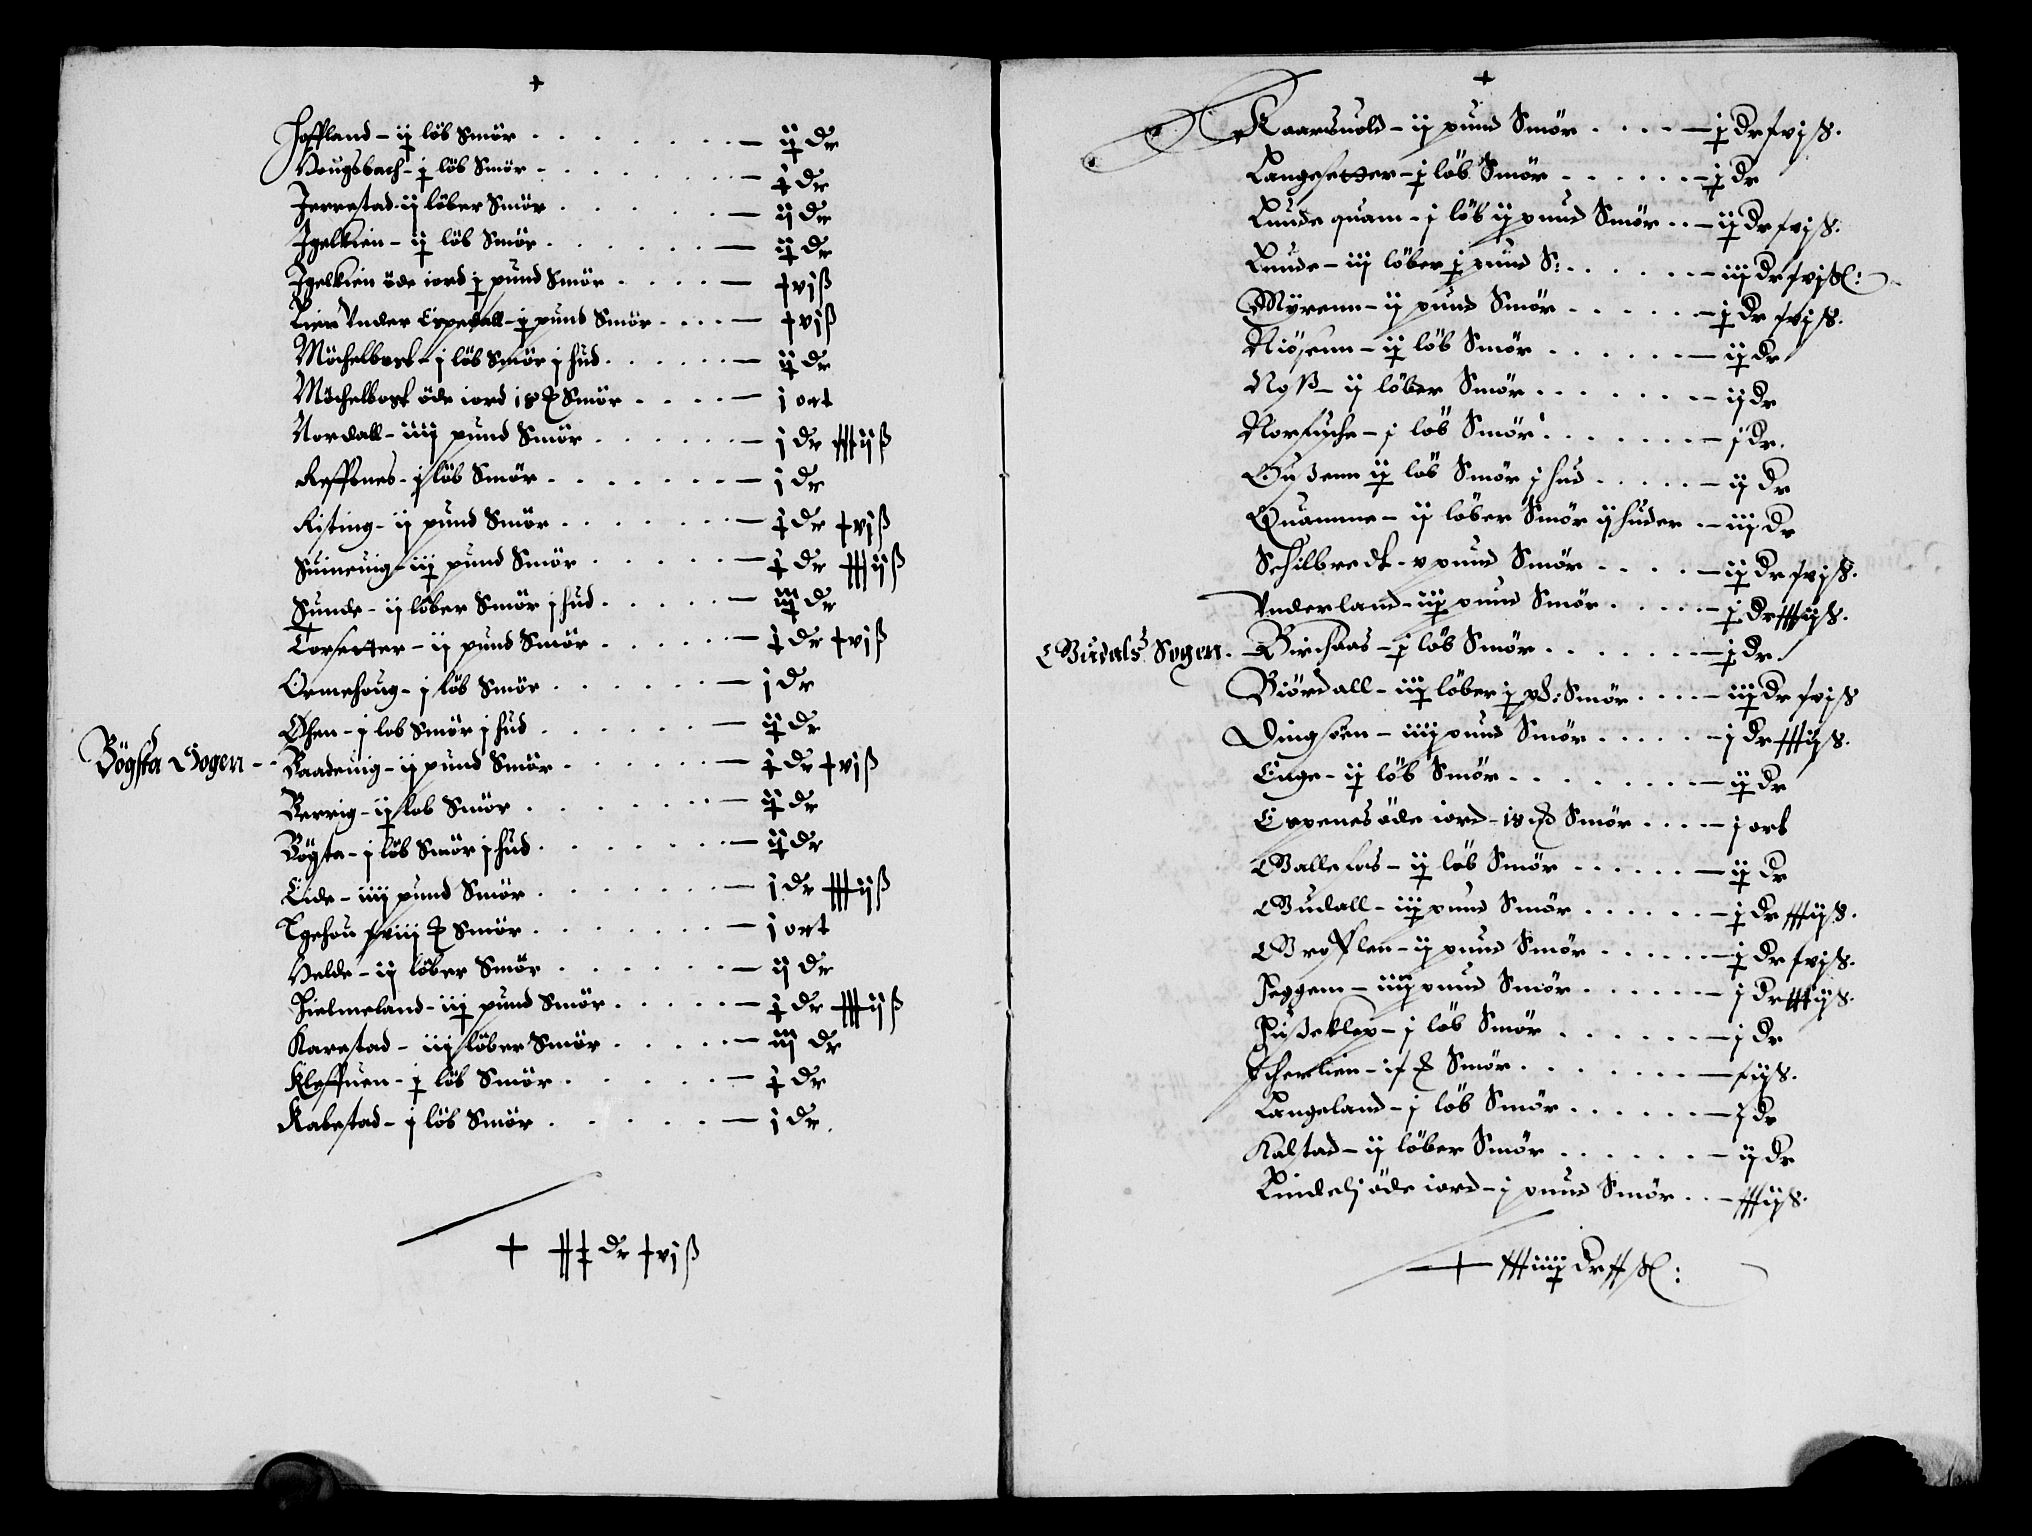 +
Hoffland - ij löb Smör . . . . . . - ij dr
Vougsbach - j löb Smör - . . . . . - j dr
Jerrestad - ij löber Smör . . . . . - ij dr
Igelkien - ij löb Smör . . . . . . - ij dr
Igelkien öde iord j pund Smör . . . . - xvjß
Lien Vnder Espedall - j pund Smör . . . - xvjß
Möchelbost - j löb Smör j hud . . . . . - ij dr
Möchelbost öde iord 18 ℔ Smör . . . . - j ort
Nordall - iiij pund Smör . . . . . - j dr xxxijß
Reffsnes - j löb Smör . . . . . . - j dr
Risting - ij pund Smör . . . . . . - j dr xvjß
Suineuig - iij pund Smör . . . . . - j dr xxxijß
Sunde - ij löber Smör j hud . . . . . - iij dr
Torsetter - ij pund Smör . . . . . - j dr xvjß
Ormehoug - j löb Smör . . . . . . - j dr
Øhen - j lob Smör j hud . . . . . . - ij dr
Bögsta Sogen - - Baadeuig - ij pund Smör . . . . . . - j dr xvjß
Berrig - ij lob Smör . . . . . . - ij dr
Bögta - j löb Smör j hud . . . . . . - ij dr
Eide - iiij pund Smör . . . . . . - j dr xxxijß
Egehou xviij ℔ Smör . . . . . . - j ort
Velde - ij löber Smör . . . . . . - ij dr
Hielmeland - iij pund Smör . . . . . - j dr xxxijß
Karestad - iij löber Smör . . . . . - iij dr
Kleffuen - j löb Smör . . . . . . - j dr
Rabestad - j löb Smör . . . . . . - j dr .
+ xxj dr xvjß
+
Kaarsuold - ij pund Smör . . . . - j dr xvjß.
Langesetter - j löb Smör . . . . . . - j dr
Lunde quam - j löb ij pund Smör . . - ij dr xvjß.
Lunde - iij löber j pund S: . . . . . . - iij dr xvjß:
Myrenn - ij pund Smör . . . . . . - j dr xvjß.
Niösenn - ij löb Smör . . . . . . - ij dr
Noß - ij löber Smör . . . . . . . - ij dr
Norsuche - j löb Smör . . . . . . . - j dr.
ij löb Smör j hud . . . . . - ij dr
Quamme - ij löber Smör ij huder . - iij dr
Schilbredt - v pund Smör . . . . - ij dr xvjß.
Vnderland - iij pund Smör . . . . . - j dr xxxijß.
Gudals Sogen . - Birchaas - j löb Smör . . . . . . . - j dr
Biördall - iij löber j pd: Smör . . . . - iij dr xvjß
Dingsöen - iiij pund Smör . . . . . - j dr xxxijß.
Enge - ij löb Smör . . . . . . . . - ij dr
Espenes öde iord - 18 ℔ Smör . . . . - j ort
Gallefos - ij löb Smör . . . . . . - ij dr
Gudall - iij pund Smör . . . . . . - j dr xxxijß.
Grofflen - ij pund Smör . . . . . . - j dr xvjß.
Heggem - iiij pund Smör . . . . . . - j dr xxxijß.
Hußeklep - j löb Smör . . . . . . - j dr
- ix ℔ Smör . . . . . . . . - xijß.
Langeland - j löb Smör . . . . . . - j dr
Kalstad - ij löber Smör . . . . . . - ij dr
öde iord - j pund Smör . . - xxxijß.
+ xxxiiij dr xx ß: